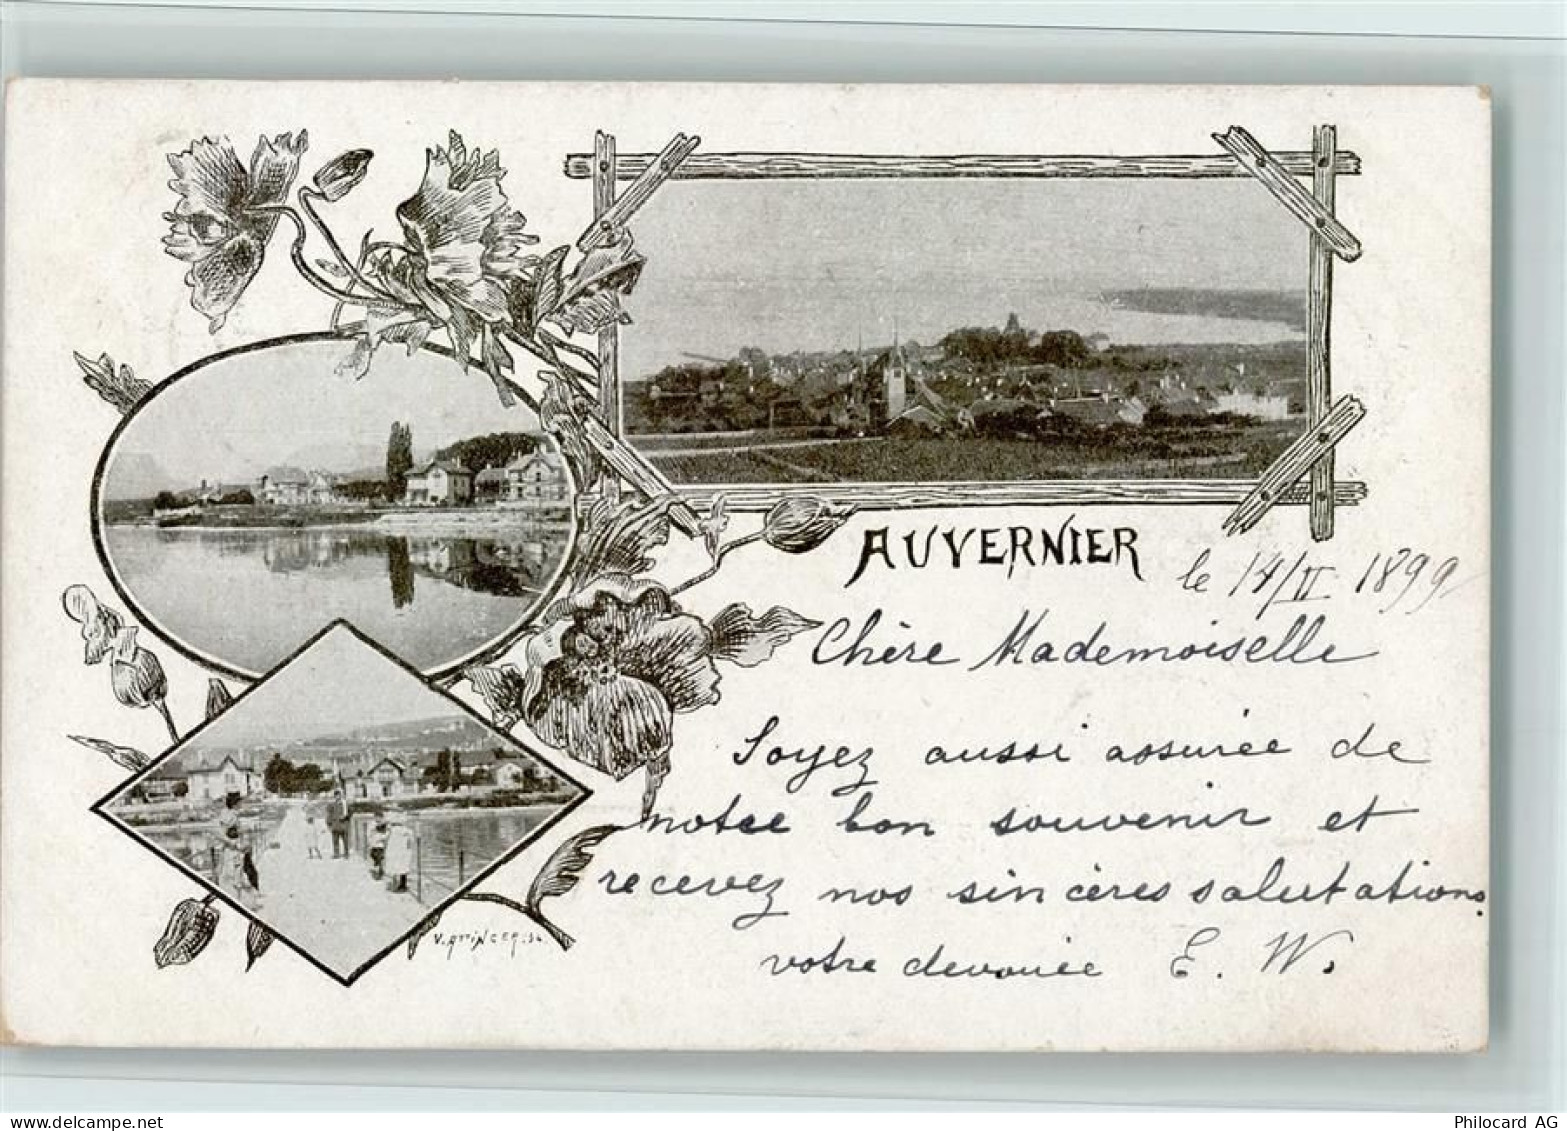 AUVERNIER
le 14/II 1899
Chère Mademoiselle
Soyez aussi assurée de
notre bon souvenir et
recevez nos sincères salutations.
votre devouée E. W.
V. ATTINGER. sc.
Philocard AG